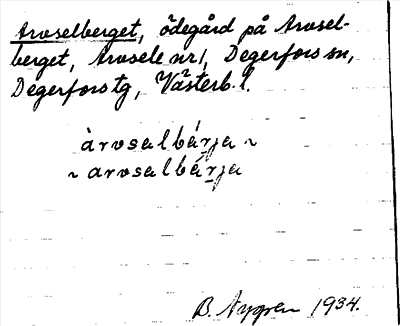 Arvselberget, ödegård på Arvsel-
berget, Arvsele nr 1, Degerfors sn,
Degerfors tg, Västerb. l.
àrvsalbárja ~
~ arvsalbárja
B. 1934.